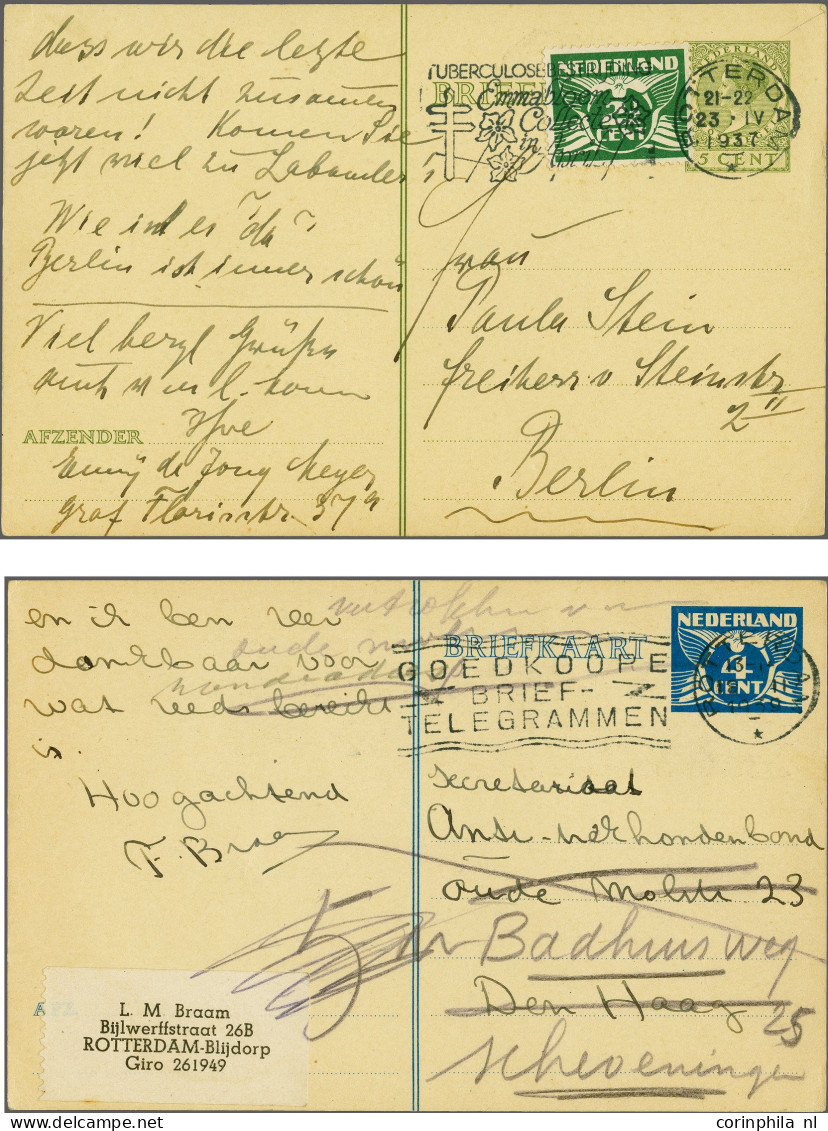 dass wir die letzte
Zeit nicht zusammen
waren! Komen Sie
jetzt viel zu
Wie ist es da?
Berlin ist immer schön
Viel herzl Grüße
auch
Ihre
AFZENDER
Emmy de Jong Meyer
Graf Florisstr. 37a
TUBERCULOSEBESTRIJDING
Emmabloem
Collecte
in
April
BRIEFK
NEDERLAND
CENT
NEDERLAND
5 CENT
ROTTERDAM
21-22
23 · IV
1937
Frau
Paula Stein
Freiherr v Steinstr
2 II
Berlin
en ik ben zeer
dankbaar voor
wat reeds bereikt
is.
Hoogachtend
F. Braam
vertrokken
oude
BRIEFKAART
GOEDKOOPE
BRIEF-
TELEGRAMMEN
NEDERLAND
4
CENT
ROTTERDAM
secretariaat
Anti-trekhondenbond
oude Molstr 23
Badhuisweg
Den Haag 25
Scheveningen
L. M. Braam
Bijlwerffstraat 26B
ROTTERDAM-Blijdorp
Giro 261949
corinphila nl